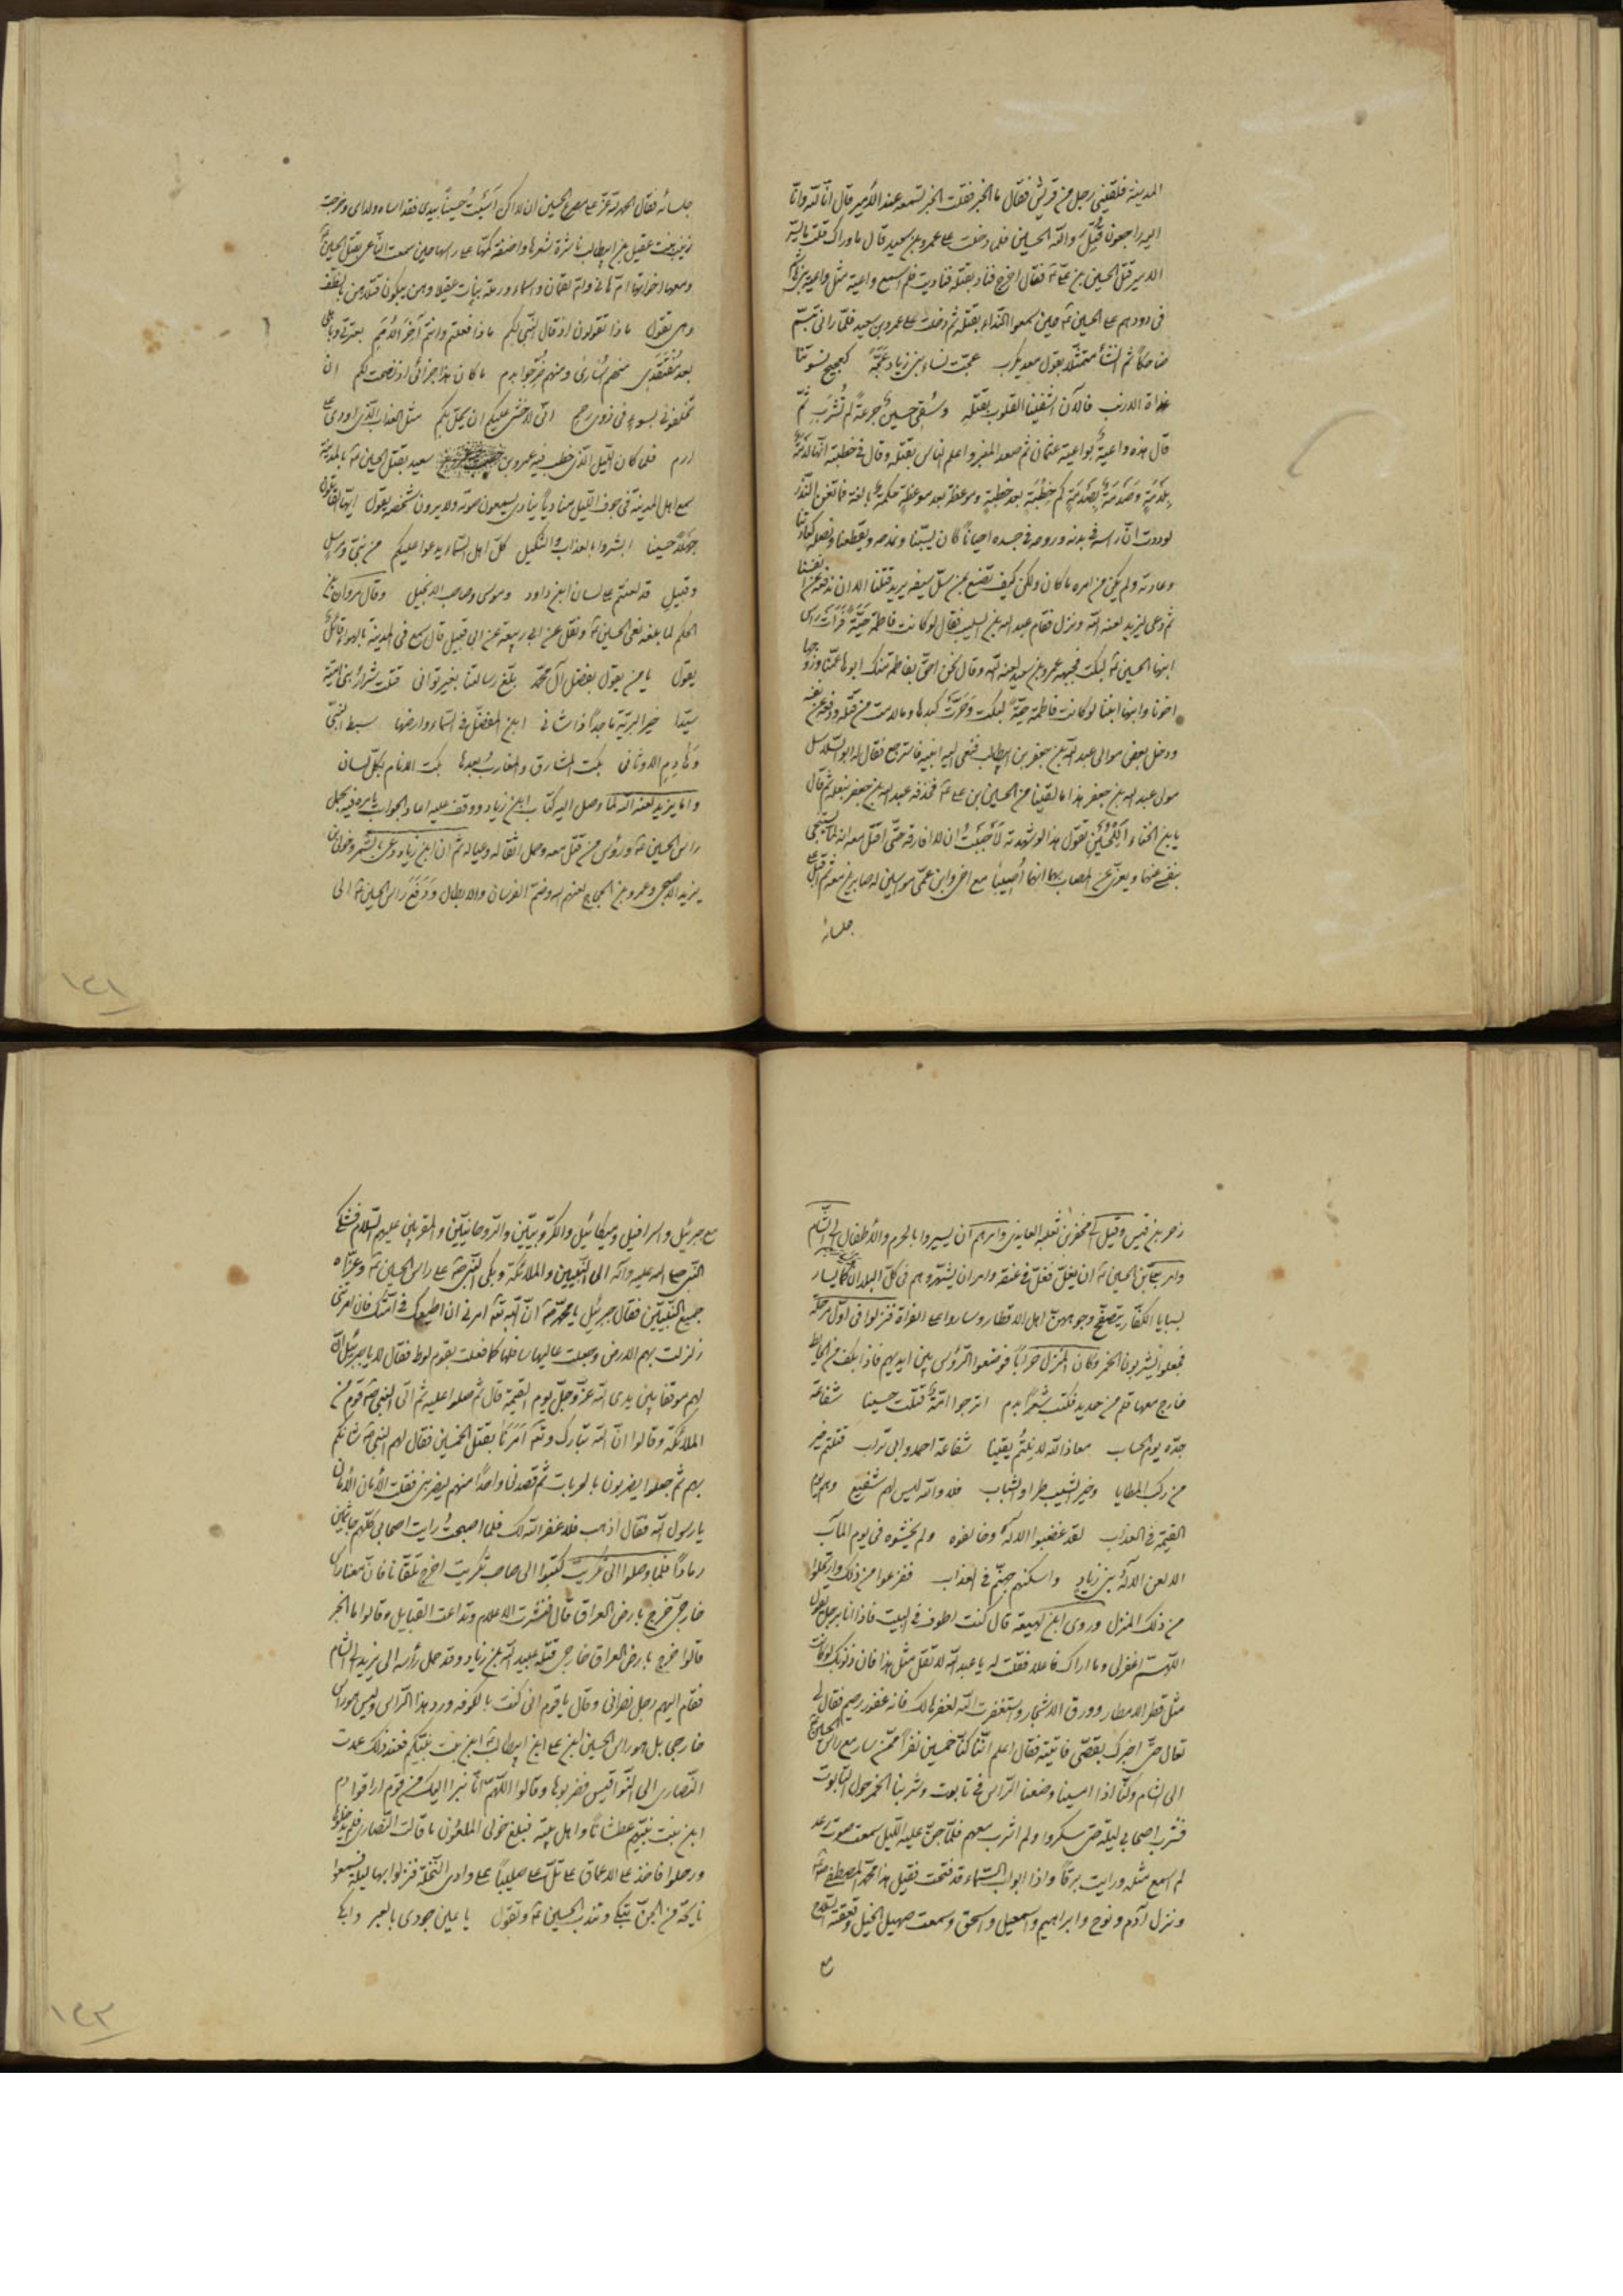 المدينة فلقيني رجل من قريش فقال ما الخبر فقلت الخبر تسمعه عند الأمير قال انا لله وانا
اليه راجعون قُتِلَ والله الحسين فلما دخلت على عمرو بن سعيد قال ما وراك قلت ما يسرّ
الامير قتل الحسين بن علي ع فقال اخرج فناد بقتله فناديت فلم اسمع واعية مثل واعية بني هاشم
في دورهم على الحسين ع حين سمعوا النداء بقتله ثم دخلت على عمرو بن سعيد فلما راني تبسّم
ضاحكاً ثم انشأ متمثلا بقول معديكرب عجّت نساء بني زياد عجّةً كعجيج نسوتنا
غداة الارنب فالآن اشفينا القلوب بقتله وسُقي حسين جرعةً لم تُشرَبِ ثمّ
قال هذه واعيةٌ بواعية عثمان ثم صعد المنبر واعلم الناس بقتله وقال في خطبته انها لدمةٌ
بِلدمَةٍ وصَدمَةٌ بِصَدمَةٍ كم خُطبَةٍ بعد خطبةٍ وموعظة بعد موعظةٍ حكمةٌ بالغة فما تغن النذر
لوددت انّ راسه في بدنه وروحه في جسده احياناً كان يسبّنا ونمدحه ويقطعنا ونصله كعادتنا
وعادته ولم يكن من امره ما كان ولكن كيف نصنع بمن سلّ سيفه يريد قتلنا الا ان ندفعه عن انفسنا
ثم دعى ليزيد لعنه الله ونزل فقام عبد الله بن السايب فقال لو كانت فاطمة حيّةً فرأت راس
ابنها الحسين ع لبكت فجبهه عمرو بن سعيد لعنه الله وقال نحن احق بفاطمة منك ابوها عمّنا وزوجها
اخونا وابنها ابننا لو كانت فاطمة حيّةً لبكت وحرّت كبدها وما لامت من قتله ودفعه عن نفسه
ودخل بعض موالي عبد الله بن جعفر بن ابيطالب فنعى اليه ابنيه فاسترجع فقال له ابو السلاسل
مولى عبد الله بن جعفر هذا ما لقينا من الحسين بن علي ع فحذفه عبد الله بن جعفر بنعله ثم قال
يا بن الخناء أللحسين تقول هذا لو شهدته لأحببت ان لا افارقه حتى اقتل معه انه لما يسخّي
بنفسي عنهما ويعزّي عن المصاب بهما انهما أصيبا مع اخي وابن عمّي مواسيين له صابرين معه ثم اقبل على
جلسائه
جلسائه فقال الحمد لله عزّ علي مصرع الحسين ان لا اكن آسيت حسيناً بيدي فقد اساه ولداي وخرجت
زينب بنت عقيل بن ابيطالب ناشرة شعرها واضعة كمّها على راسها حين سمعت الناعي بقتل الحسين ع
ومعها اخواتها ام هاني وام لقمان واسماء ورملة بنات عقيل وهن يبكون قتلاهن بالطف
وهي تقول ماذا تقولون اذ قال النبي لكم ماذا فعلتم وانتم آخر الأمم بعترتي وباهلي
بعد مُفتَقَدي منهم أسارى ومنهم ضُرّجوا بدم ما كان هذا جزائي اذ نصحت لكم ان
تخلفوني بسوءٍ في ذوي رحم اني لاخشى عليكم ان يحلّ بكم مثل العذاب الذي اودى على
ارم فلما كان الليل الذي خطب فيه عمرو بن سعيد بقتل الحسين ع بالمدينة
سمع اهل المدينة في جوف الليل منادياً ينادي يسمعون صوته ولا يرون شخصه يقول ايها القاتلون
جهلاً حسينا ابشروا بالعذاب والتنكيل كلّ اهل السماء يدعوا عليكم من نبيّ ومرسلٍ
وقبيلٍ قد لعنتم على لسان ابن داود وموسى وصاحب الانجيل وقال مروان بن
الحكم لما بلغه نعي الحسين ع ونقل عن ابي ربيعة عن ابي قبيل قال سمع في المدينة بالهواء قائلٌ
يقول يا من يقول بفضل آل محمّد بلّغ رسالتنا بغير تواني قتلت شرار بني اميّة
سيّدا خير البريّة ماجداً ذا شان ابن المفضّل في السماء وارضها سبط النبيّ
وهادِمِ الاوثان بكت المشارق والمغارب بعدما بكت الانام بكلّ لسان
واما يزيد لعنه الله لمّا وصل اليه كتاب ابن زياد ووقف عليه اعاد الجواب يامره فيه بحمل
راس الحسين ع ورؤس من قتل معه وحمل اثقاله وعياله ثم ان ابن زياد دعى بالشمر وخولى بن
يزيد الاصبحي وعمرو بن الحجاج لعنهم الله وضمّ الفرسان والابطال ودفع راس الحسين ع الى
زحر بن قيس وقيل الى محفر بن ثعلبة العايذي وامرهم ان يسيروا بالحرم والأطفال الى الشام
وامر بعلي بن الحسين ع ان يغلّ بغلّ في عنقه وامر ان يشهّروهم في كلّ البلدان كما يسار
بسبايا الكفّار يتصفّح وجوههنّ اهل الاقطار وساروا على الفراة فنزلوا في اوّل مرحلة
فجعلوا يشربون الخمر وكان المنزل خراباً فوضعوا الرؤس بين ايديهم فاذا بكف من الحايط
خارج معها قلم من حديد فكتب شعراً بدم اترجوا امّةٌ قتلت حسينا شفاعة
جدّه يوم الحساب معاذ الله لا نلتُم يقينا شفاعة احمد وابي تراب قتلتم خير
من ركب المطايا وخير الشيب طرا والشباب فلا والله ليس لهم شفيع وهم يوم
القيمة في العذاب لقد غضبوا الاله وخالفوه ولم يخشوه في يوم المآب
الا لعن الاله بني زيادٍ واسكنهم جهنّم في العذاب ففزعوا من ذلك وارتحلوا
من ذلك المنزل وروى ابن لهيعة قال كنت اطوف في البيت فاذا انا برجل يقول
اللهم اغفرلي وما اراك فاعلا فقلت له يا عبد الله لا تقل مثل هذا فان ذنوبك لو كانت
مثل قطر الامطار وورق الاشجار واستغفرت الله لغفرها لك فانه غفور رحيم فقال لي
تعال حتى اخبرك بقصّتي فاتيته فقال اعلم انّنا كنّا خمسين نفراً ممّن سار مع راس الحسين ع
الى الشام وكنّا اذا امسينا وضعنا الراس في تابوت وشربنا الخمر حول التابوت
فشرب اصحابي ليلة حتى سكروا ولم اشرب معهم فلمّا جنّ عليه الليل سمعت صوت رعد
لم اسمع مثله ورايت برقاً واذا ابواب السماء قد فتحت فقيل هذا محمّد المصطفى ص
ونزل آدم ونوح وابراهيم واسمعيل واسحق وسمعت صهيل الخيل وقعقعة السلاح
مع
مع جبرئيل واسرافيل وميكائيل والكرّوبيّين والروحانيّين والمقرّبين عليهم السلام فشكى
النبي صلى الله عليه وآله الى النبيين والملائكة وبكى النبي ص على راس الحسين ع وعزّاه
جميع النبيّين فقال جبرئيل يا محمّد ص انّ الله تع امرني ان اطيعك في امّتك فان امرتني
زلزلت بهم الارض وجعلت عاليها سافلها كما فعلت بقوم لوط فقال لا يا جبرئيل انّ
لهم موقفا بين يدي الله عزّ وجلّ يوم القيمة قال ثم صلوا عليه ثم اتى النبي ص قوم من
الملائكة وقالوا انّ الله تبارك وتع امرنا بقتل الخمسين فقال لهم النبي ص شانكم
بهم ثم جعلوا يضربون بالحربات ثم قصدني واحداً منهم ليضربني فقلت الأمان الأمان
يا رسول الله فقال اذهب فلا غفر الله لك فلما اصبحت رايت اصحابي كلّهم جاثمين
رماداً فلما وصلوا الى تكريت كتبوا الى صاحب تكريت اخرج تلقّانا فان معنا راس
خارجي خرج بارض العراق قال فنشرت الاعلام وتداعت القبايل وقالوا ما الخبر
قالوا خرج بارض العراق خارجي قتله عبيد الله بن زياد وقد حمل رأسه الى يزيد الى الشام
فقام اليهم رجل نصراني وقال يا قوم اني كنت بالكوفه وورد هذا الراس وليس هو راس
خارجي بل هو راس الحسين بن علي ابن ابيطالب ع ابن بنت نبيّكم فعند ذلك عمدت
النصارى الى النواقيس فضربوها وقالوا اللّهمّ انّا نبرا اليك من قوم اراقوا دم
ابن بنت نبيّهم عطشاناً واهل بيته فبلغ خولى الملعون ما قالت النصارى فلم يدخلوها
ورحلوا فاخذ على الاعماق على تلّ على صليبا على وادي النخلة فنزلوا بها ليلة فسمعوا
نايحة من الجنّ تبكي وتندب الحسين ع وتقول يا عين جودي بالعبر وابكي
١٢١
١٢٢